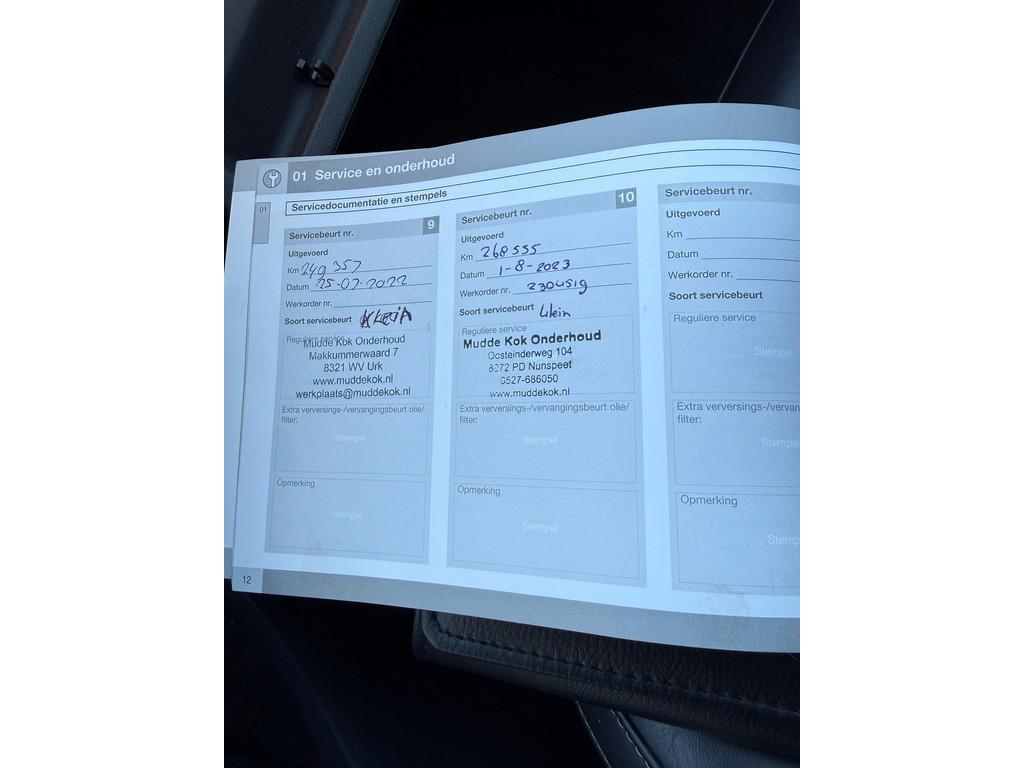 01 Service en onderhoud
01
Servicedocumentatie en stempels
Servicebeurt nr. 9
Uitgevoerd
Km 249357
Datum 25-07-2022
Werkorder nr.
Soort servicebeurt Klein
Reguliere service
Mudde Kok Onderhoud
Makkummerwaard 7
8321 WV Urk
www.muddekok.nl
werkplaats@muddekok.nl
Extra verversings-/vervangingsbeurt olie/
filter:
Stempel
Opmerking
Stempel
12
Servicebeurt nr. 10
Uitgevoerd
Km 268555
Datum 1-8-2023
Werkorder nr.
Soort servicebeurt klein
Reguliere service
Mudde Kok Onderhoud
Oosteinderweg 104
8072 PD Nunspeet
0527-686050
www.muddekok.nl
Extra verversings-/vervangingsbeurt olie/
filter:
Stempel
Opmerking
Stempel
Servicebeurt nr.
Uitgevoerd
Km
Datum
Werkorder nr.
Soort servicebeurt
Reguliere service
Stempel
Extra verversings-/vervan
filter:
Stempel
Opmerking
Stemp